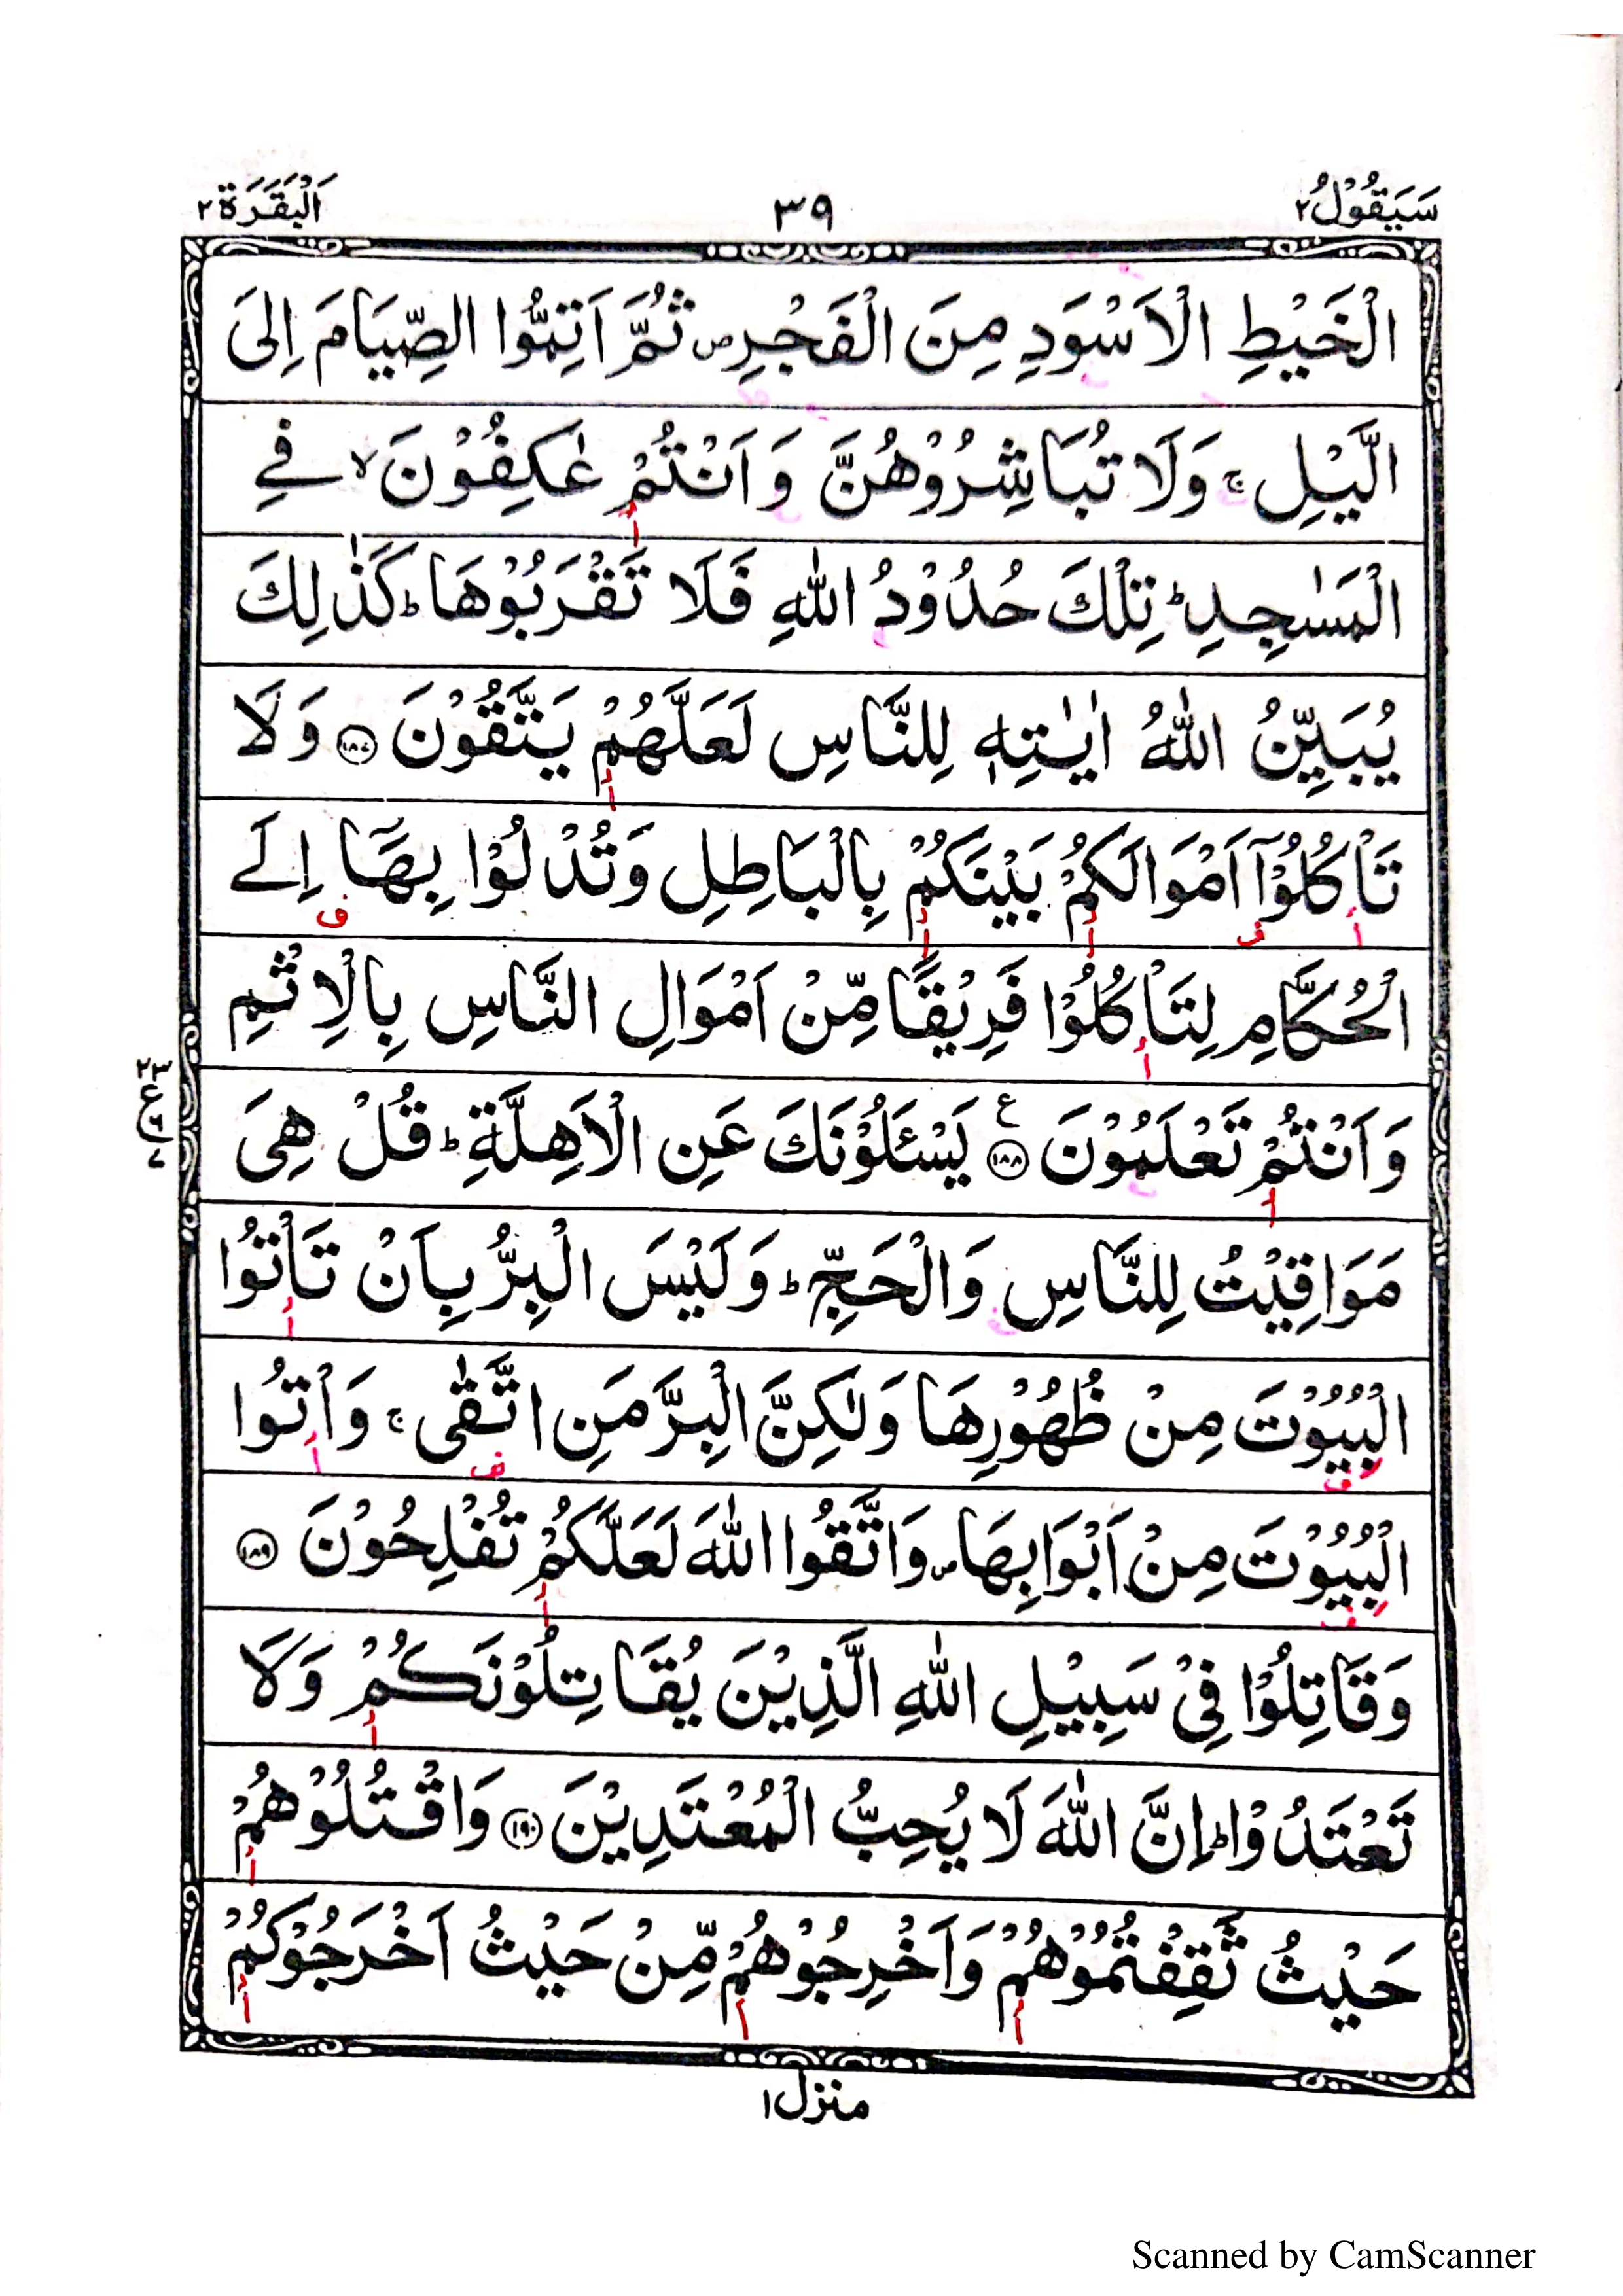 سَيَقُوْلُ ٢
٣٩
اَلْبَقَرَة ٢
الْخَيْطِ الْاَسْوَدِ مِنَ الْفَجْرِ ص ثُمَّ اَتِمُّوا الصِّيَامَ اِلَى
الَّيْلِ ج وَلَا تُبَاشِرُوْهُنَّ وَاَنْتُمْ عٰكِفُوْنَ لا فِے
الْمَسٰجِدِ ط تِلْكَ حُدُوْدُ اللّٰهِ فَلَا تَقْرَبُوْهَا ط كَذٰلِكَ
يُبَيِّنُ اللّٰهُ اٰيٰتِهٖ لِلنَّاسِ لَعَلَّهُمْ يَتَّقُوْنَ ١٨٧ وَلَا
تَاْكُلُوْٓا اَمْوَالَكُمْ بَيْنَكُمْ بِالْبَاطِلِ وَتُدْلُوْا بِهَآ اِلَے
الْحُكَّامِ لِتَاْكُلُوْا فَرِيْقًا مِّنْ اَمْوَالِ النَّاسِ بِالْاِثْمِ
وَاَنْتُمْ تَعْلَمُوْنَ ١٨٨ ع يَسْـَٔلُوْنَكَ عَنِ الْاَهِلَّةِ ط قُلْ هِىَ
مَوَاقِيْتُ لِلنَّاسِ وَالْحَجِّ ط وَلَيْسَ الْبِرُّ بِاَنْ تَاْتُوا
الْبُيُوْتَ مِنْ ظُهُوْرِهَا وَلٰكِنَّ الْبِرَّ مَنِ اتَّقٰى ج وَاْتُوا
الْبُيُوْتَ مِنْ اَبْوَابِهَا ص وَاتَّقُوا اللّٰهَ لَعَلَّكُمْ تُفْلِحُوْنَ ١٨٩
وَقَاتِلُوْا فِىْ سَبِيْلِ اللّٰهِ الَّذِيْنَ يُقَاتِلُوْنَكُمْ وَلَا
تَعْتَدُوْا ط اِنَّ اللّٰهَ لَا يُحِبُّ الْمُعْتَدِيْنَ ١٩٠ وَاقْتُلُوْهُمْ
حَيْثُ ثَقِفْتُمُوْهُمْ وَاَخْرِجُوْهُمْ مِّنْ حَيْثُ اَخْرَجُوْكُمْ
منزل ١
Scanned by CamScanner